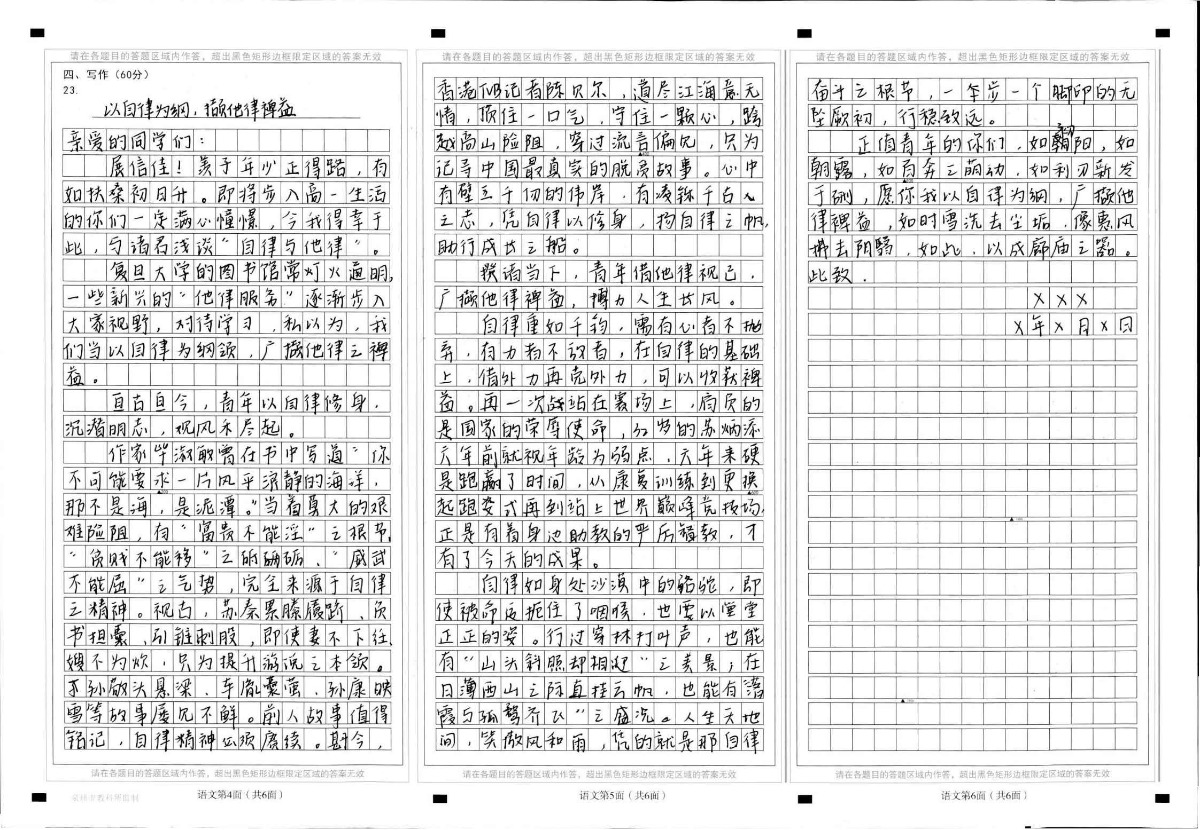 请在各题目的答题区域内作答，超出黑色矩形边框限定区域的答案无效
四、写作（60分）
23.
以自律为纲，撷他律裨益
亲爱的同学们：
展信佳！羡于年少正得路，有
如扶桑初日升。即将步入高一生活
的你们一定满心憧憬，今我得幸于
此，与诸君浅谈“自律与他律”。
复旦大学的图书馆常灯火通明，
一些新兴的“他律服务”逐渐步入
大家视野，对待学习，私以为，我
们当以自律为纲领，广撷他律之裨
益。
亘古亘今，青年以自律修身，
沉潜明志，观风禾尽起。
作家毕淑敏曾在书中写道“你
不可能要求一片风平浪静的海洋，
那不是海，是泥潭。”当着莫大的艰
难险阻，有“富贵不能淫”之根节，
“贫贱不能移”之砺砺，“威武
不能屈”之气势，完全来源于自律
之精神。视古，苏秦羸縢履蹻、负
书担囊、引锥刺股，即使妻不下纴，
嫂不为炊，只为提升游说之本领。
亦孙敬头悬梁、车胤囊萤、孙康映
雪等故事屡见不鲜。前人故事值得
铭记，自律精神必须赓续。斟今，
请在各题目的答题区域内作答，超出黑色矩形边框限定区域的答案无效
语文第4面（共6面）
请在各题目的答题区域内作答，超出黑色矩形边框限定区域的答案无效
香港TVB记者陈贝尔，道尽江海意无
情，顶住一口气，守住一颗心，跨
越高山险阻，穿过流言偏见，只为
记录中国最真实的脱贫故事。心中
有壁立千仞的伟岸，有凌铄千古
之志，凭自律以修身，扬自律之帆，
助行成长之船。
聚语当下，青年借他律视己，
广撷他律裨益，搏力人生长风。
自律重如千钧，需有心者不抛
弃，有力者不放弃，在自律的基础
上，借外力再克外力，可以收获裨
益。再一次战站在赛场上，肩负的
是国家的荣辱使命，32岁的苏炳添
六年前就视年龄为弱点，六年来硬
是跑赢了时间，从康复训练到更换
起跑姿式再到站上世界巅峰竞技场，
正是有着身边助教的严厉辅教，才
有了今天的成果。
自律如身处沙漠中的骆驼，即
使被命运扼住了咽喉，也要以堂堂
正正的姿。行过穿林打叶声，也能
有“山头斜照却相迎”之美景；在
日薄西山之际直挂云帆，也能有落
霞与孤鹜齐飞”之盛况。人生天地
间，笑傲风和雨，凭的就是那自律
请在各题目的答题区域内作答，超出黑色矩形边框限定区域的答案无效
语文第5面（共6面）
请在各题目的答题区域内作答，超出黑色矩形边框限定区域的答案无效
奋斗之根节，一步一个脚印的无
坠厥初，行稳致远。
正值青年的你们，如朝阳，如
朝露，如百卉之萌动，如利刃新发
于硎，愿你我以自律为纲，广撷他
律裨益，如时雪洗去尘垢，像惠风
拂去阴翳，如此，以成廊庙之器。
此致.
×××
×年×月×日
请在各题目的答题区域内作答，超出黑色矩形边框限定区域的答案无效
语文第6面（共6面）